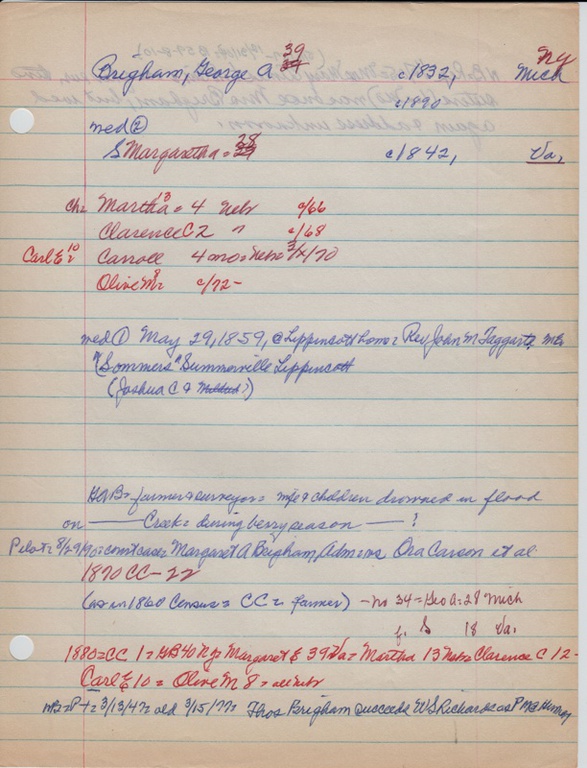 39
Brigham, George A 37 c1832, NY Mich
c1890
med ②
28
S Margaretha = 27 c1842, Va,
ch = Martha 13 = 4 Nebr c/66
Clarence C 2 " c/68
Carl E 10 = Carroll 4 mo = Nebr 3/x/70
Olive M 8 = c/72-
med ① May 29, 1859, @ Lippincott home = Rev John M Taggart, ME
"Sommers" Summerville Lippincott
(Joshua C & Mildred ?)
GAB = farmer = surveyor = wife & children drowned in flood
on ——— Creek = during berry season — ?
Pilot = 8/29/90 = court case = Margaret A Brigham, Admx vs Ora Carson et al
1870 CC-22
(as in 1860 Census = CC = farmer) - no 34 = Geo A = 28 Mich
f. S 18 Va,
1880 = CC 1 = GB 40 NY = Margaret E 39 Va = Martha 13 Neb = Clarence C 12-
Carl E 10 = Olive M 8 = all Nebr
3/13/47 = old 3/15/77 = Thos Brigham succeeds WS Richards as PM @